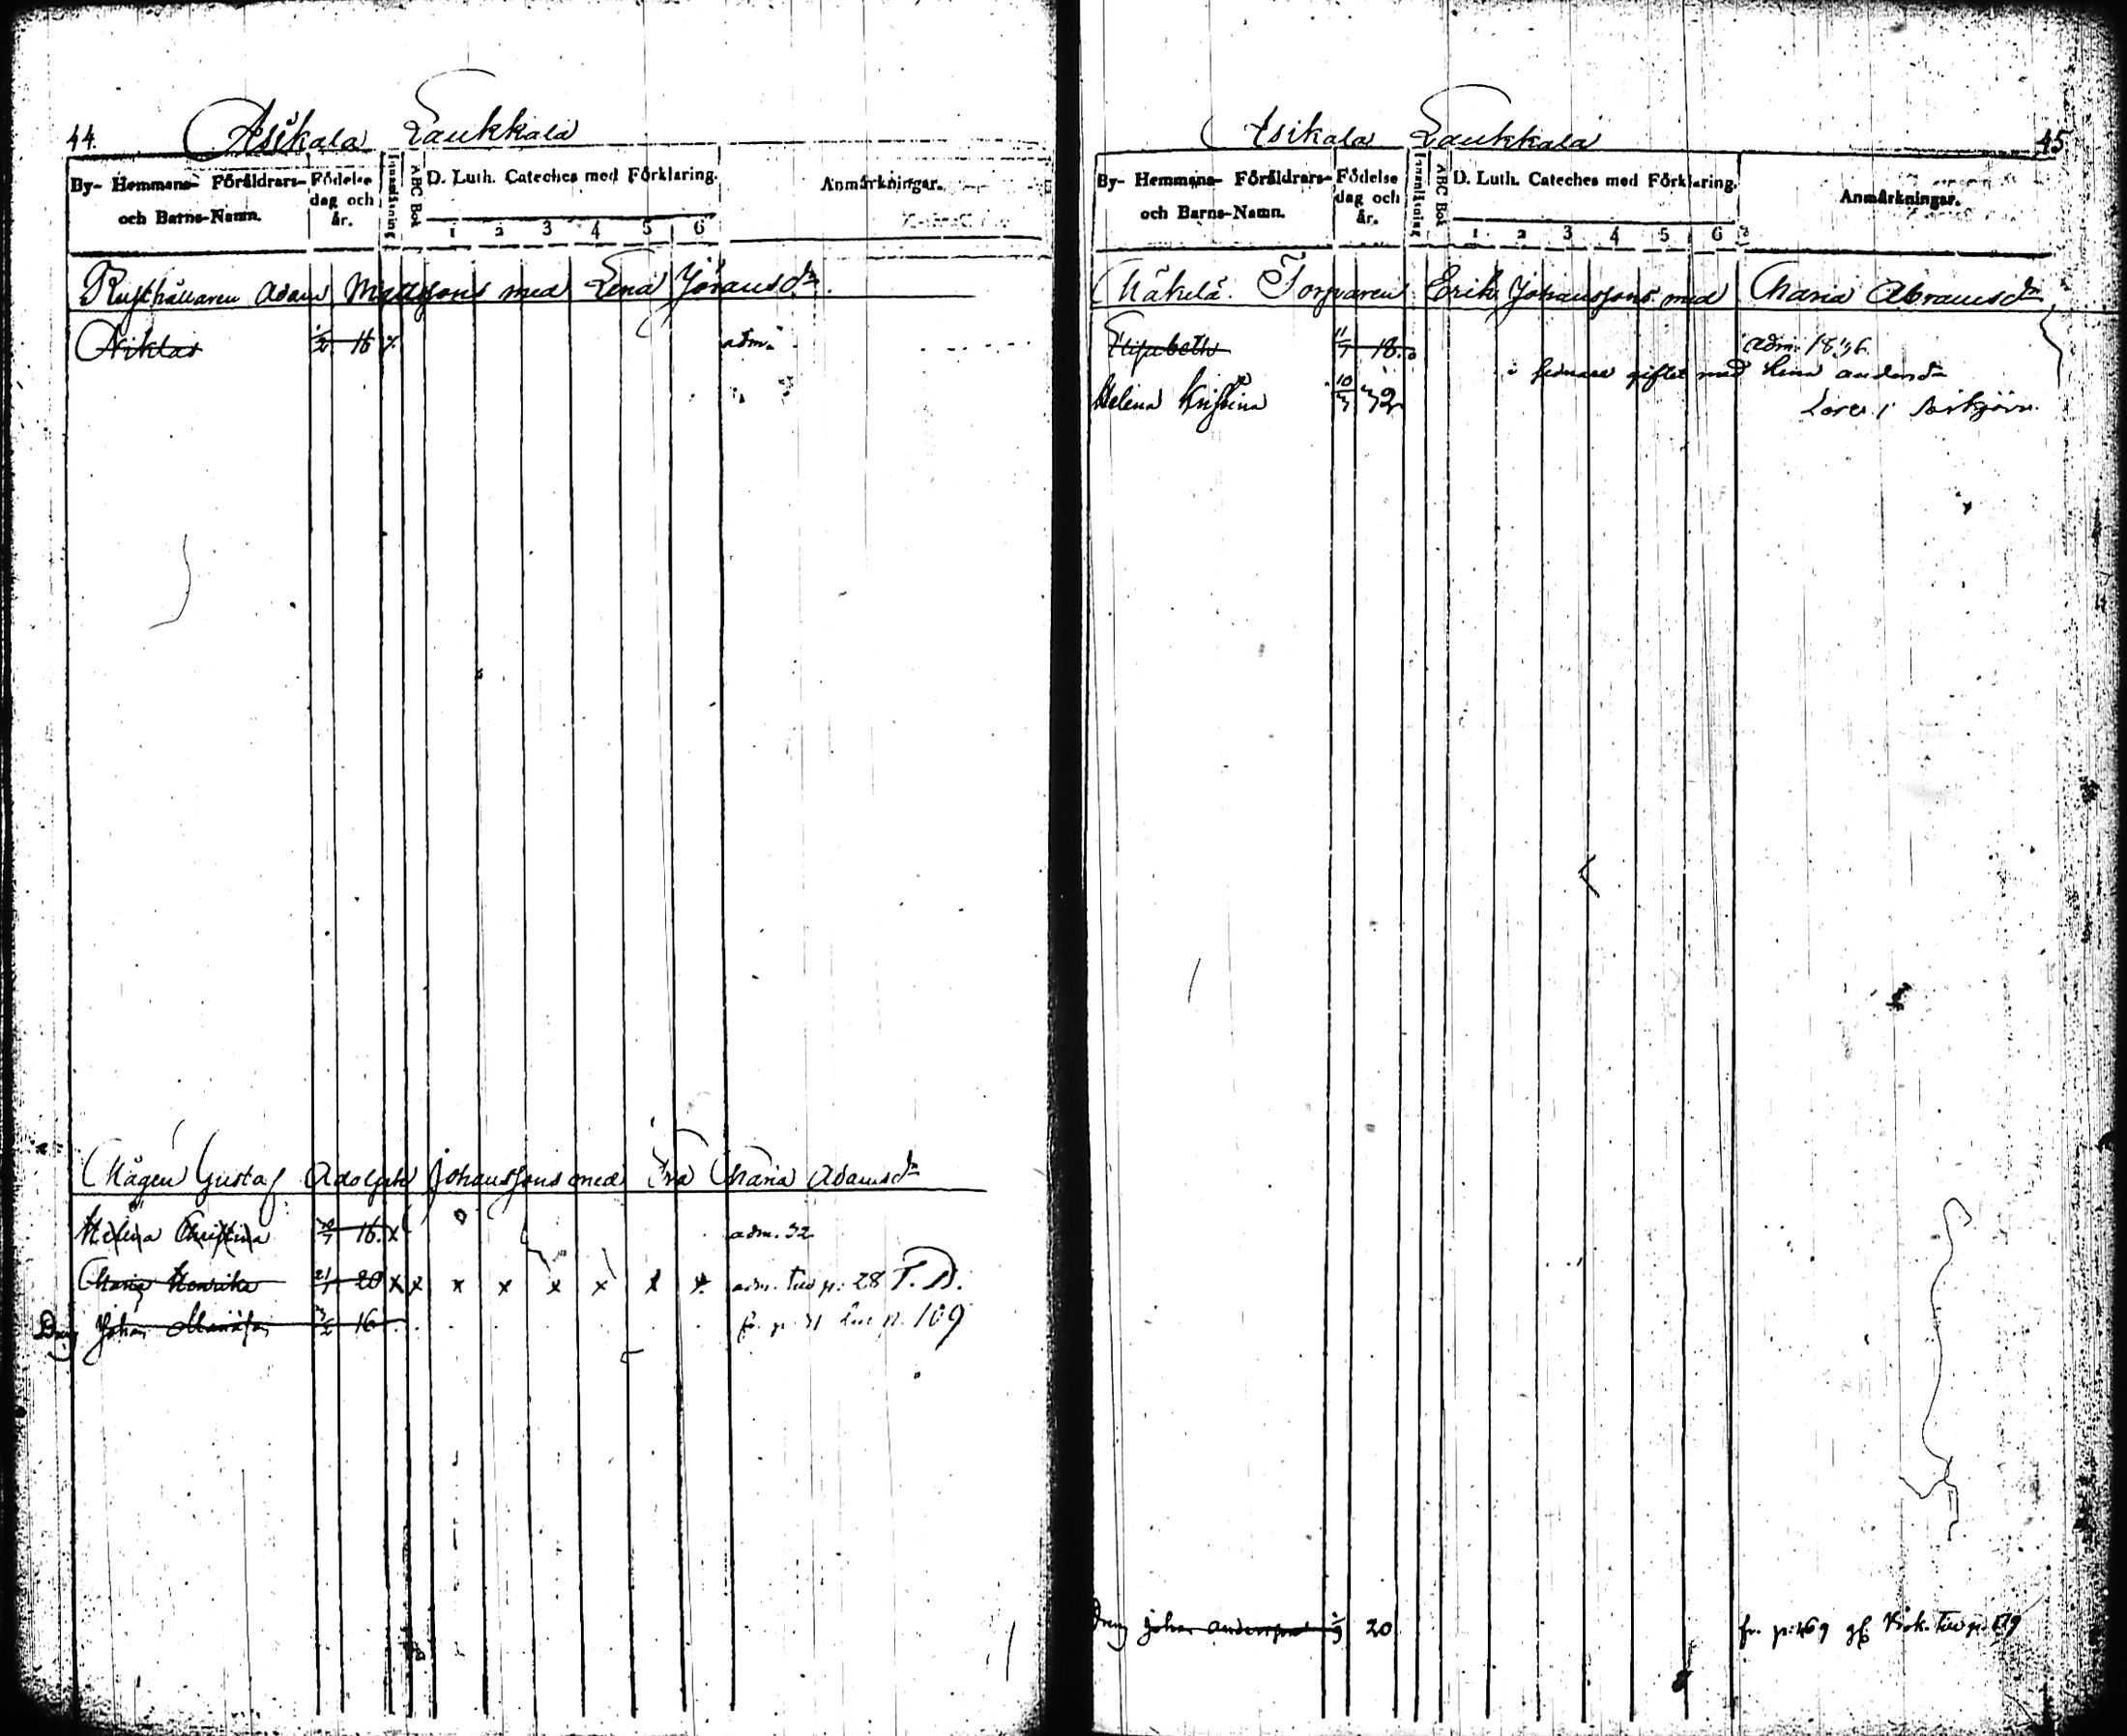 44. Asikala Laukkala
By- Hemmans- Föräldrars- och Barns-Namn. Födelse dag och år. Innanläsning ABC Bok D. Luth. Cateches med Förklaring. 1 2 3 4 5 6 Anmärkningar.
Rusthållaren Adam Mattssons med Lena Jöransdr.
Niklas 16 adm.
Mågen Gustaf Adolph Johanssons med Eva Maria Adamsdr
Helena Christina 16. x adm. 32
Maria Henrika 21/1 20 x x x x x x x x. adm. p. 28 T. D.
Dreng Johan 16 fr. p. 31 p. 109
Asikala Laukkala 45
By- Hemmans- Föräldrars- och Barns-Namn. Födelse dag och år. Innanläsning ABC Bok D. Luth. Cateches med Förklaring. 1 2 3 4 5 6 Anmärkningar.
Mäkelä. Torparen Erik Johanssons med Maria Abramsdr
Elisabeth 11/7 18. adm. 1836.
i senare giftet med Lena Andersdr
Helena Kristina 10/3 32
Dreng Johan Andersson 20 fr. p. 169